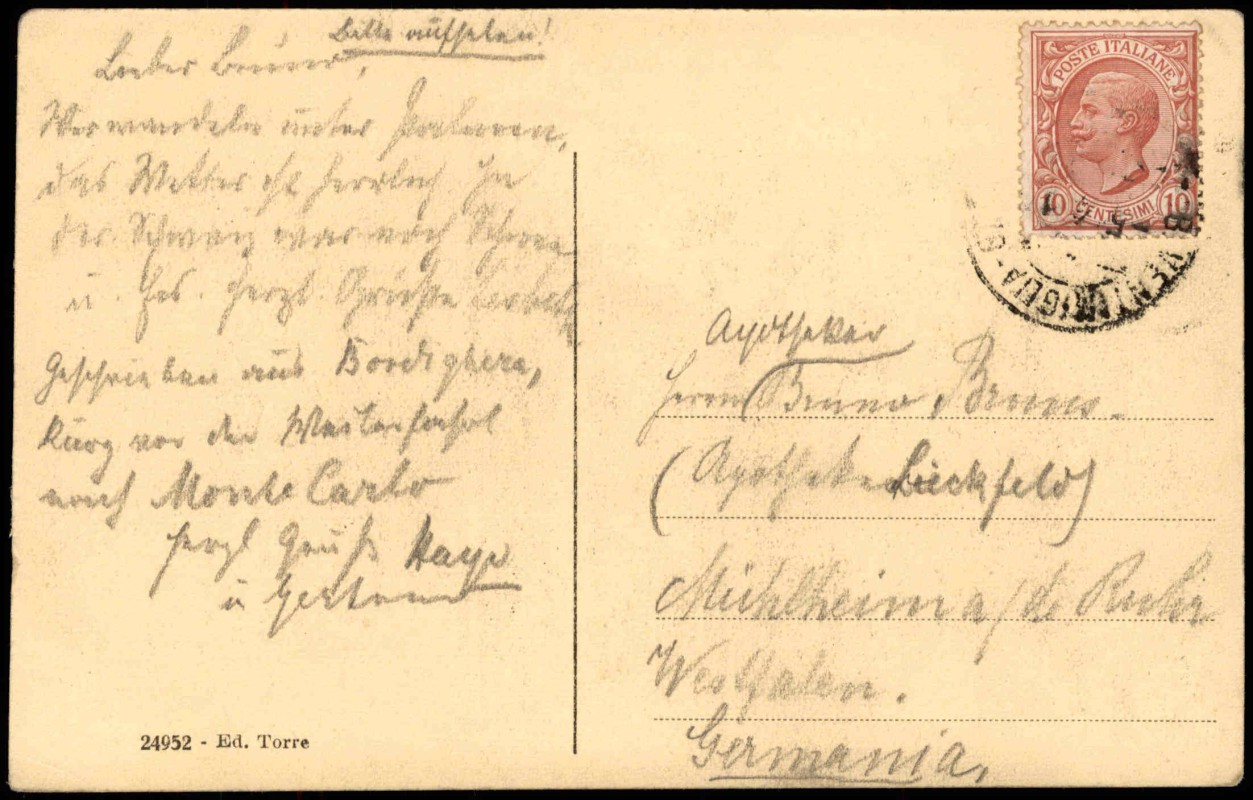 Bitte aufheben!
Lieber Bruno,
Wir wandeln unter Palmen,
das Wetter ist herrlich In
der Schweiz war noch Schnee
u. Eis. Herzl Grüße
Geschrieben aus Bordighera,
kurz vor der Weiterfahrt
nach Monte Carlo
Herzl Grüße Haye
u Gertrud
24952 - Ed. Torre
POSTE ITALIANE
10 CENTESIMI 10
VENTIMIGLIA
Apotheker
Herrn Bruno Bruns.
(Apotheke Lieckfeld)
Mühlheim a/de Ruhr
Westfalen.
Germania.